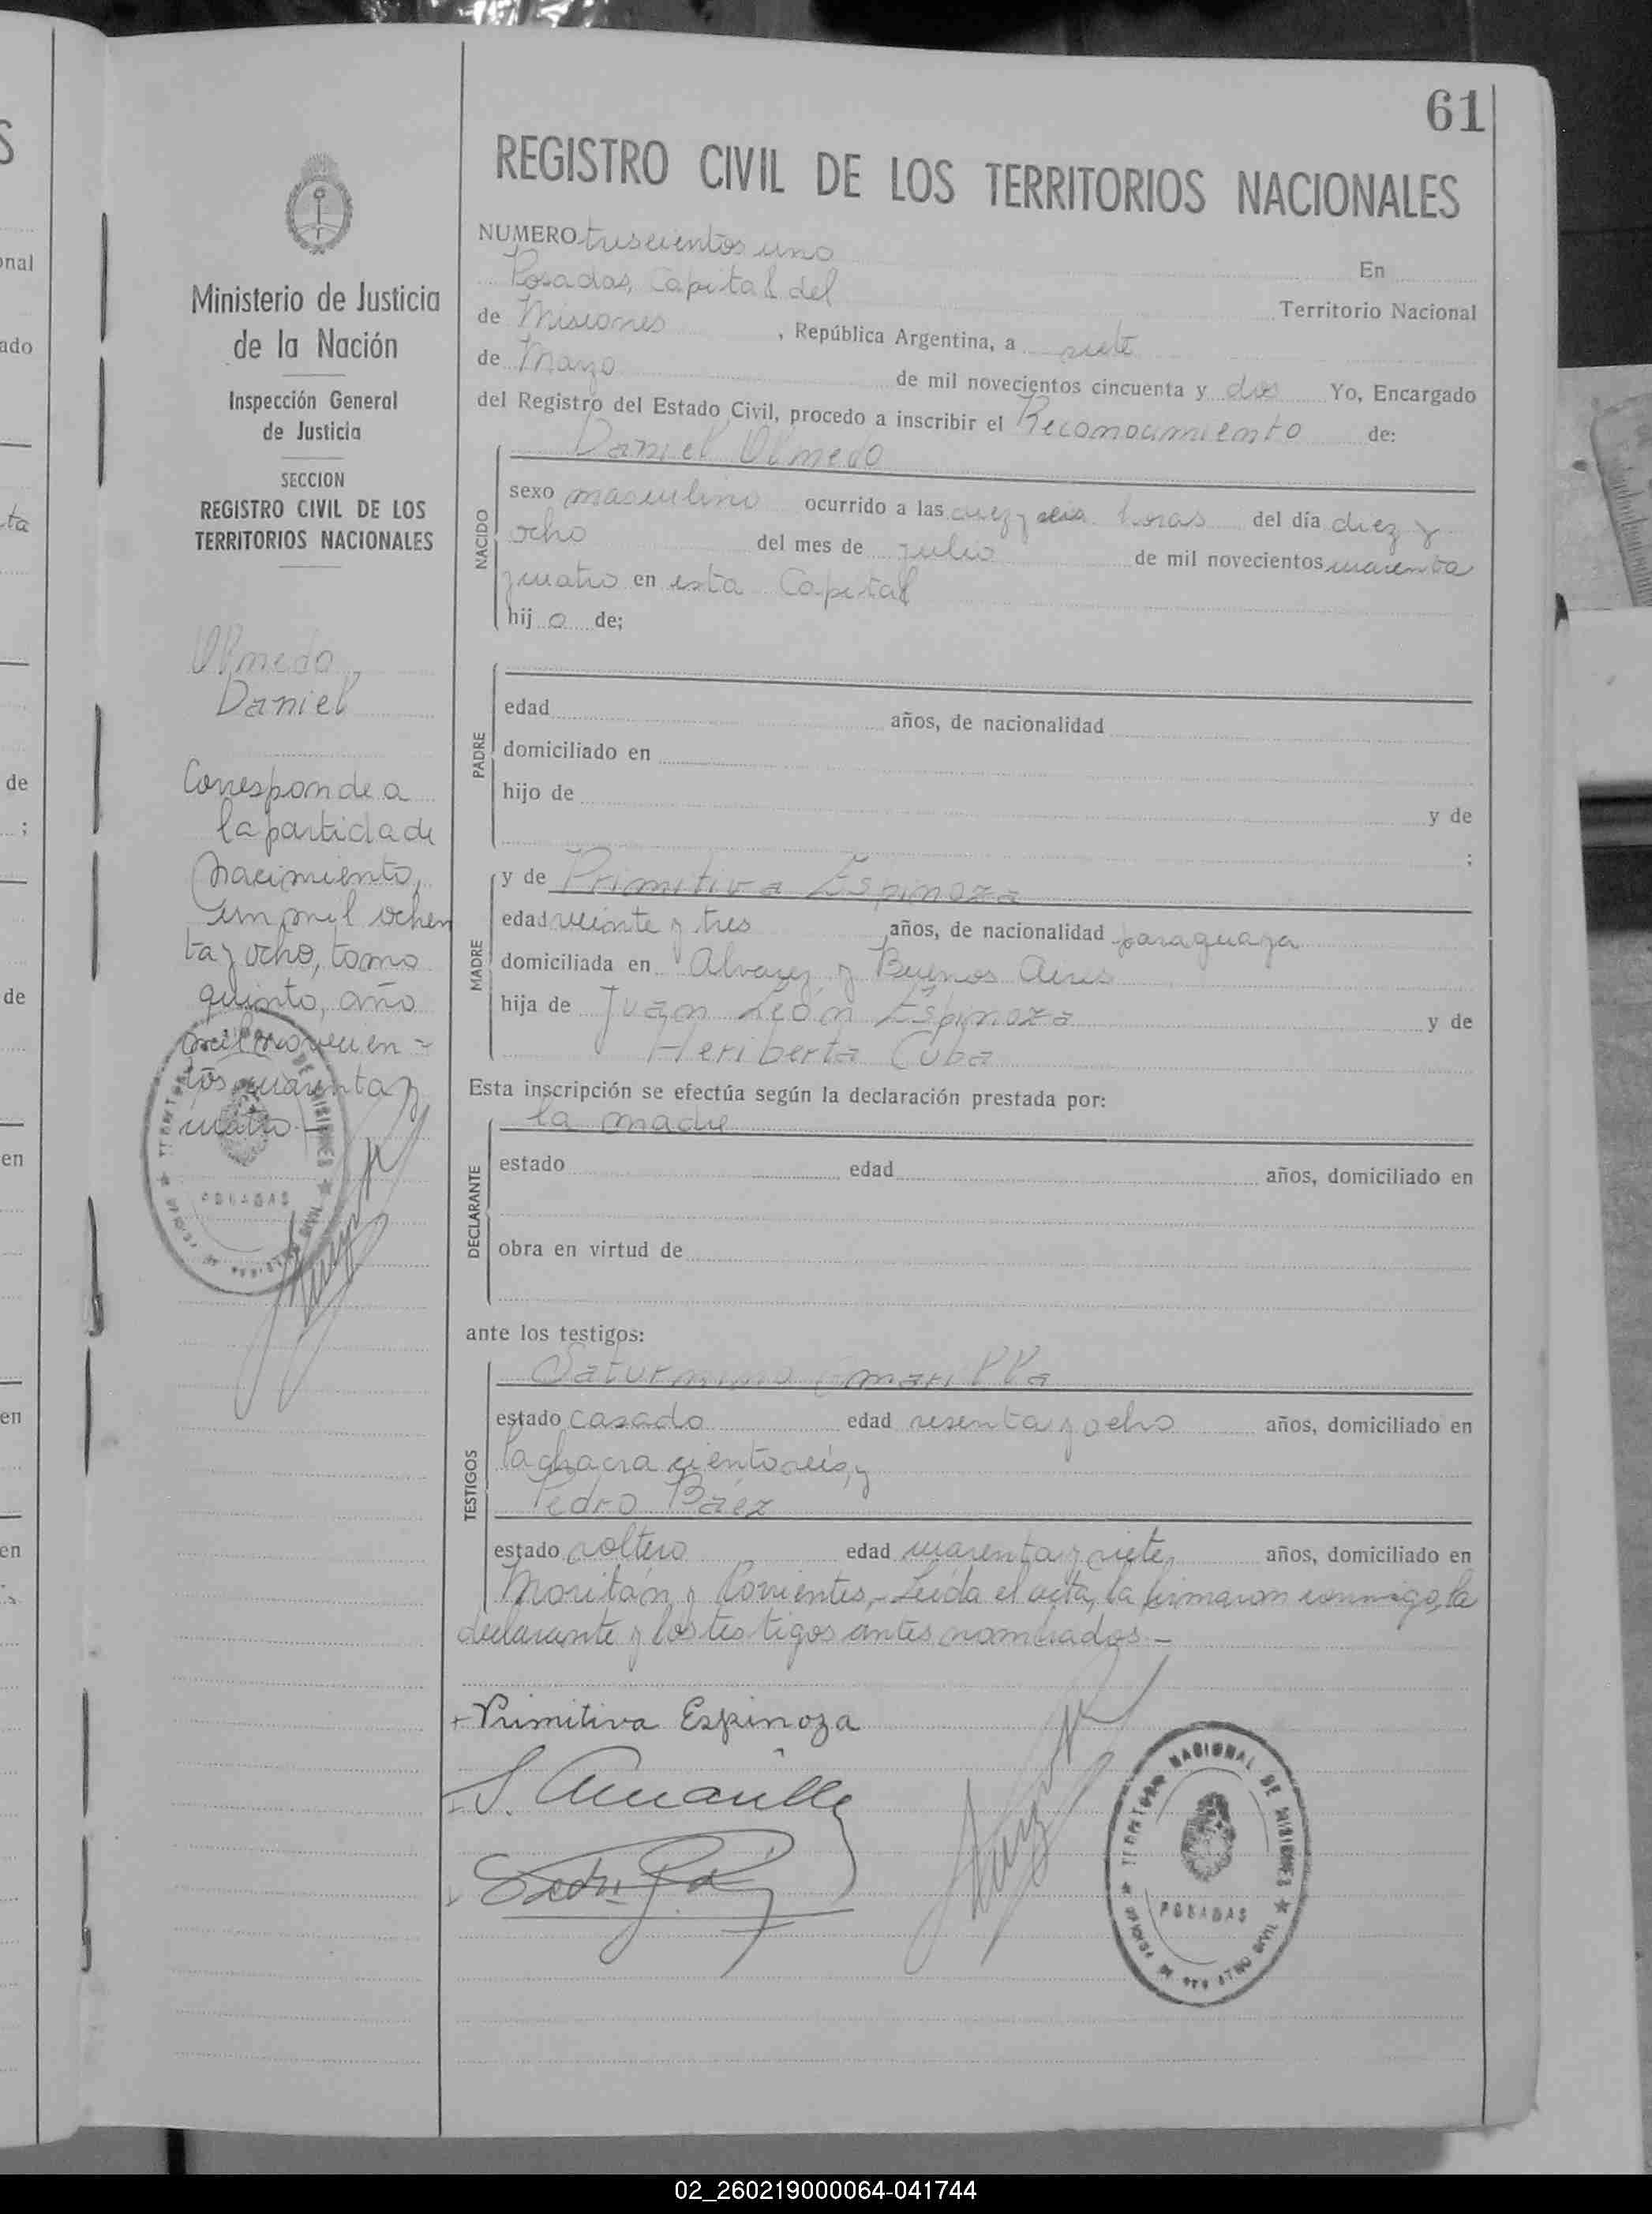 61
REGISTRO CIVIL DE LOS TERRITORIOS NACIONALES
Ministerio de Justicia
de la Nación
Inspección General
de Justicia
SECCION
REGISTRO CIVIL DE LOS
TERRITORIOS NACIONALES
Olmedo,
Daniel
Corresponde a
la partida de
nacimiento,
un mil ochen
ta y ocho, tomo
quinto, año
mil novecien-
tos cuarenta y
cuatro.-
POSADAS
NUMERO trescientos uno En
Posadas, Capital del Territorio Nacional
de Misiones, República Argentina, a siete
de Mayo de mil novecientos cincuenta y dos Yo, Encargado
del Registro del Estado Civil, procedo a inscribir el Reconocimiento de:
Daniel Olmedo
NACIDO
sexo masculino ocurrido a las diez y seis horas del día diez y
ocho del mes de julio de mil novecientos cuarenta
y cuatro en esta Capital
hij o de;
PADRE
edad años, de nacionalidad
domiciliado en
hijo de y de
;
MADRE
y de Primitiva Espinoza
edad veinte y tres años, de nacionalidad paraguaya
domiciliada en Alvarez y Buenos Aires
hija de Juan León Espinoza y de
Heriberta Cuba
Esta inscripción se efectúa según la declaración prestada por:
la madre
DECLARANTE
estado edad años, domiciliado en
obra en virtud de
ante los testigos:
TESTIGOS
Saturnino Amarilla
estado casado edad sesenta y ocho años, domiciliado en
la chacra ciento seis, y
Pedro Báez
estado soltero edad cuarenta y siete, años, domiciliado en
Moritán y Corrientes,- Leída el acta, la firmaron conmigo, la
declarante y los testigos antes nombrados.-
Primitiva Espinoza
S. Amarilla
TERRITORIO NACIONAL DE MISIONES
POSADAS
OFICINA DE REGISTRO CIVIL
onal
ado
ta
de
;
de
en
en
en
02_260219000064-041744